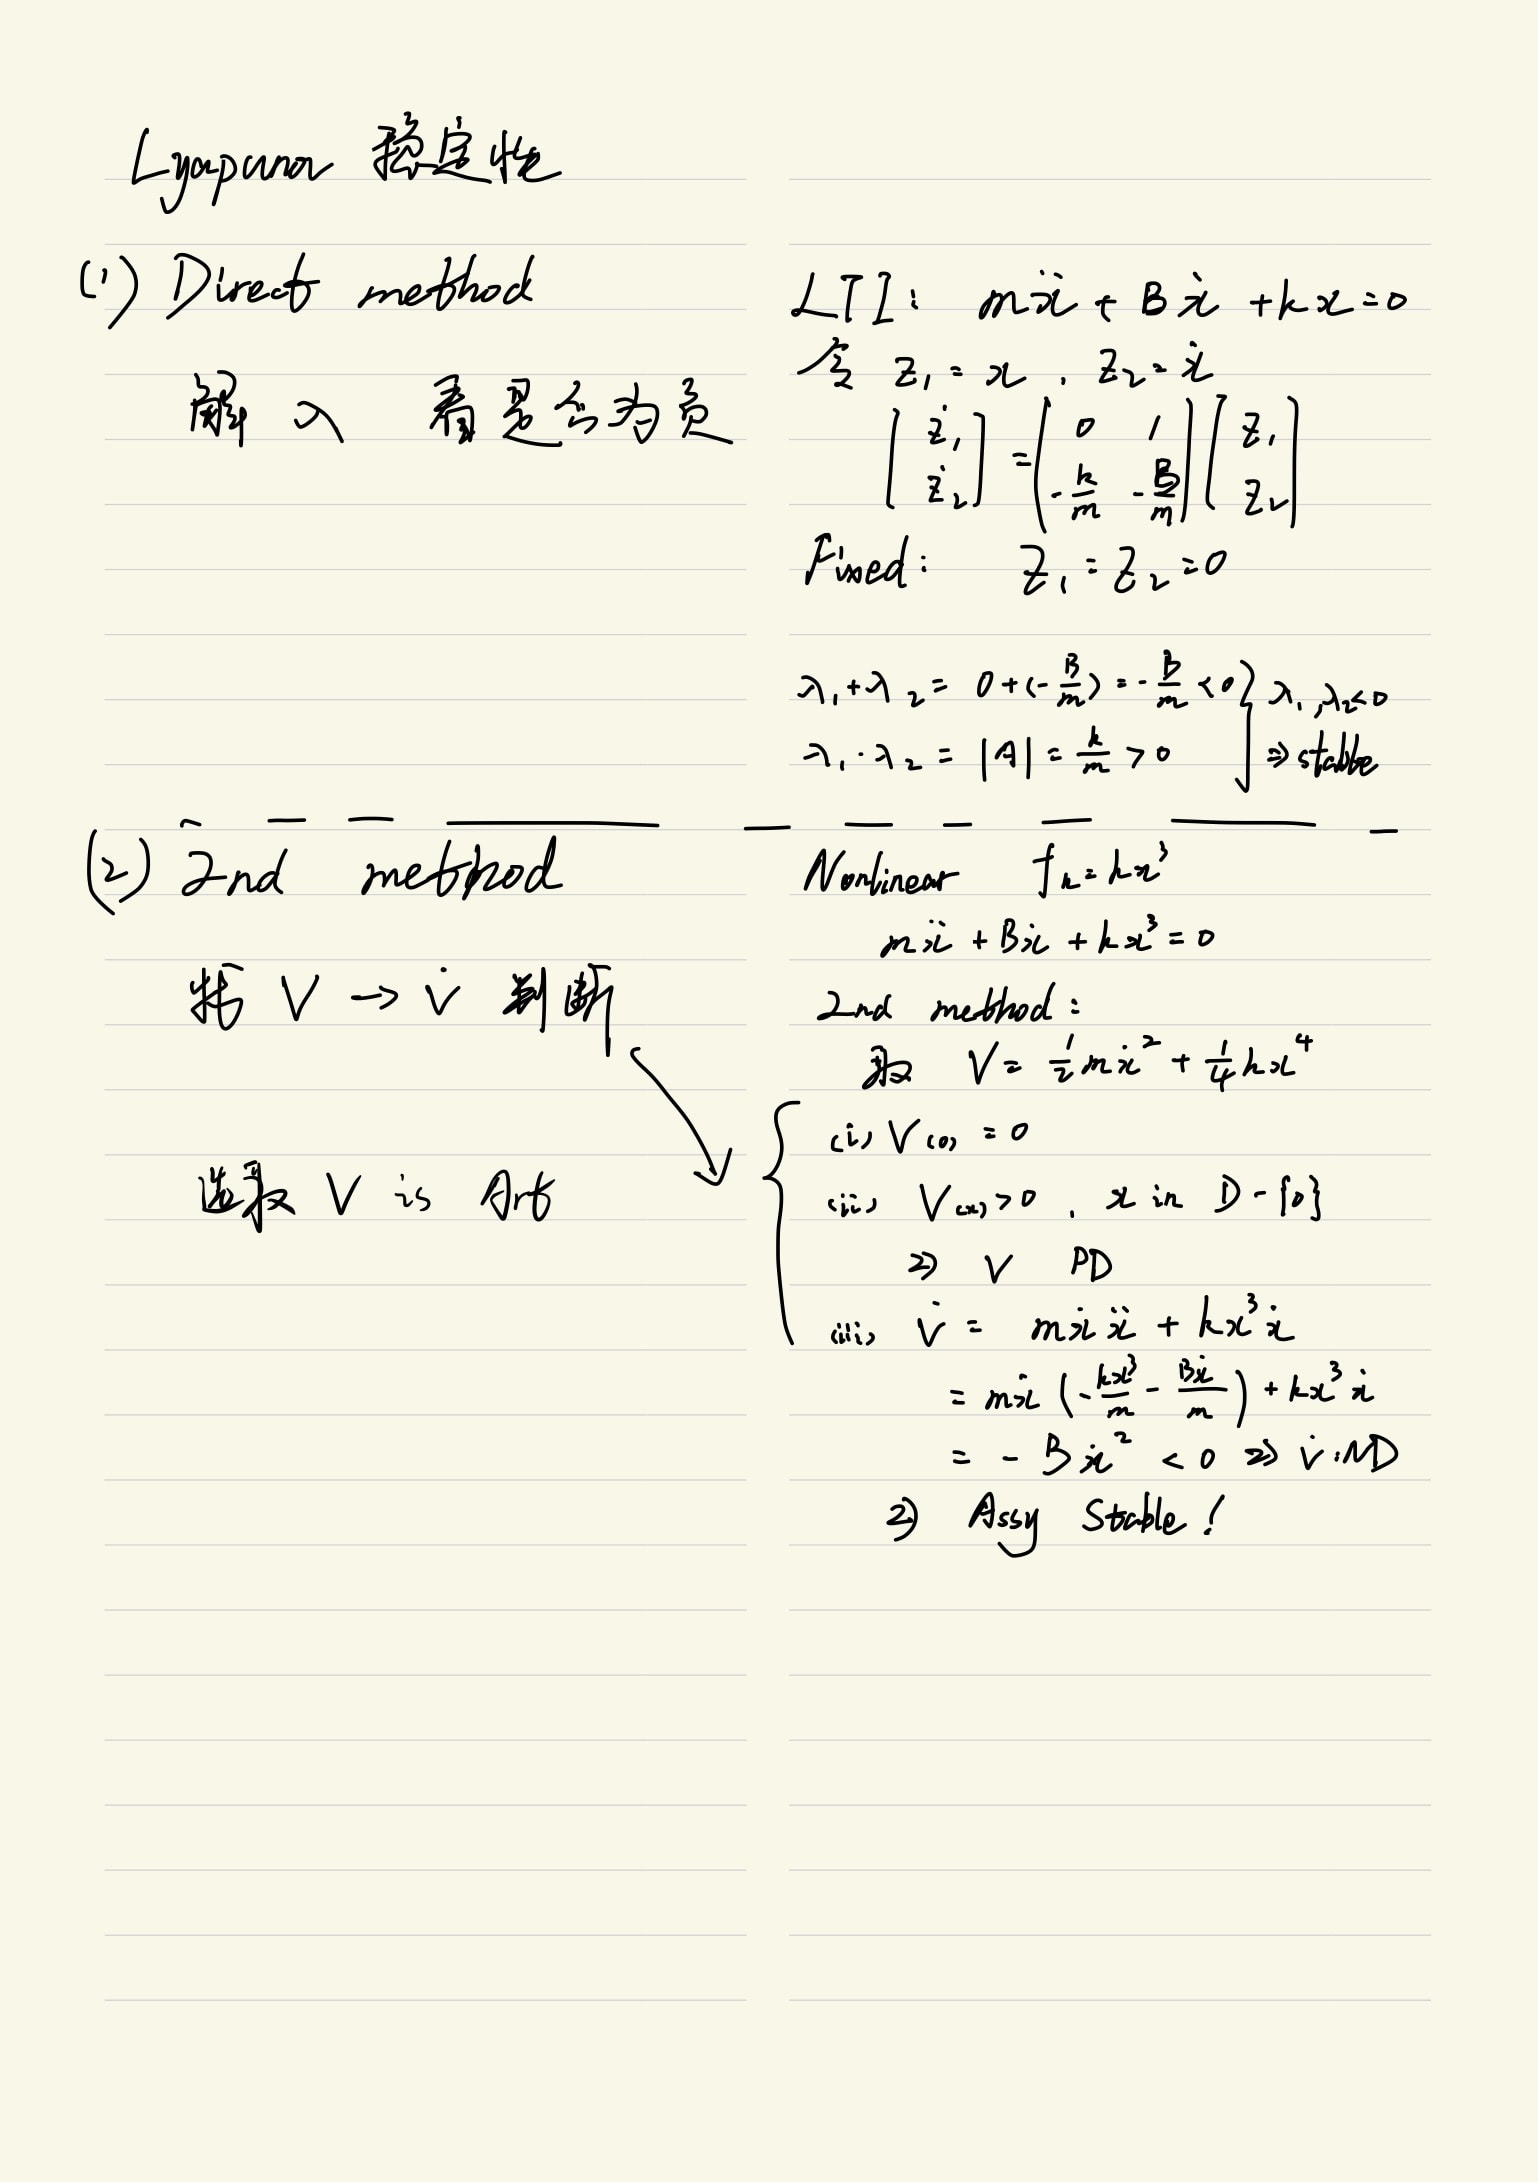 Lyapunov 稳定性
(1) Direct method
解 λ 看是否为负
LTI: mẍ + Bẋ + kx = 0
令 z₁ = x , z₂ = ẋ
[ż₁ ż₂] = (0 1 -k/m -B/m) [z₁ z₂]
Fixed: z₁ = z₂ = 0
λ₁+λ₂ = 0+(-B/m) = -B/m < 0 } λ₁,λ₂<0
λ₁·λ₂ = |A| = k/m > 0 ⇒ stable
(2) 2nd method
找 V → V̇ 判断
选取 V is Art
Nonlinear fₖ = kx³
mẍ + Bẋ + kx³ = 0
2nd method:
取 V = 1/2 mẋ² + 1/4 kx⁴
(i) V(0) = 0
(ii) V(x) > 0 , x in D-{0}
⇒ V PD
(iii) V̇ = mẋẍ + kx³ẋ
= mẋ (-kx³/m - Bẋ/m) + kx³ẋ
= -Bẋ² < 0 ⇒ V̇: ND
⇒ Assy Stable!